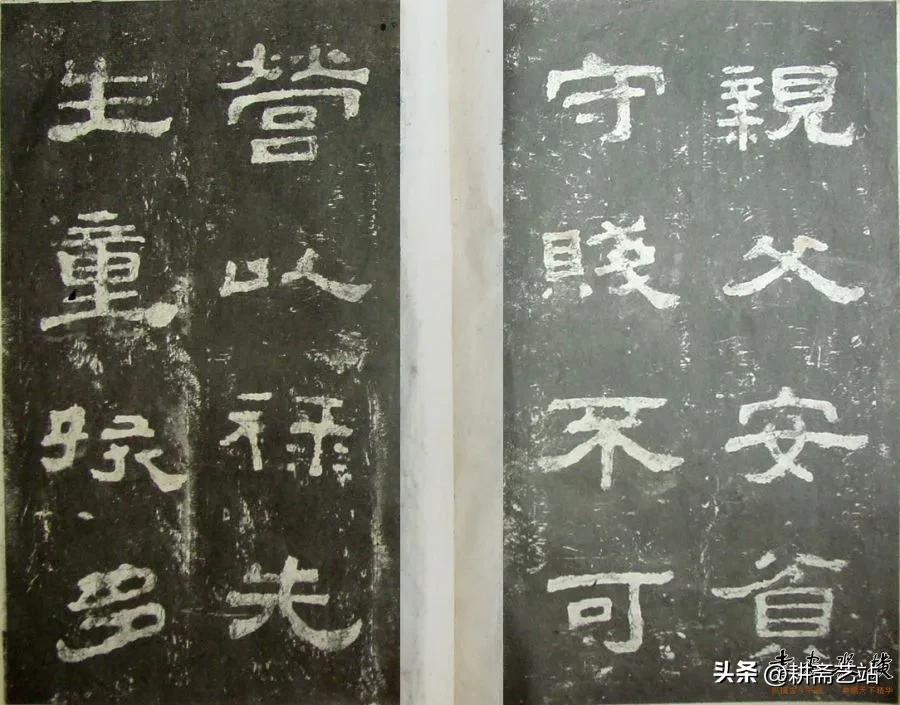 親父安貧
守賤不可
營以祿先
生童孩多
头条 @耕斋艺站